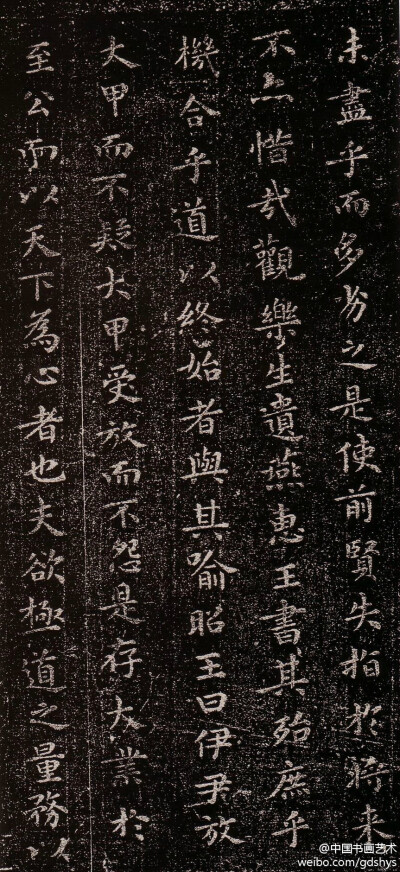 未盡乎而多劣之是使前賢失指於將来
不亦惜哉觀樂生遺燕惠王書其殆庶乎
機合乎道以終始者與其喻昭王曰伊尹放
大甲而不疑大甲受放而不怨是存大業於
至公而以天下為心者也夫欲極道之量務以
@中国书画艺术
weibo.com/gdshys